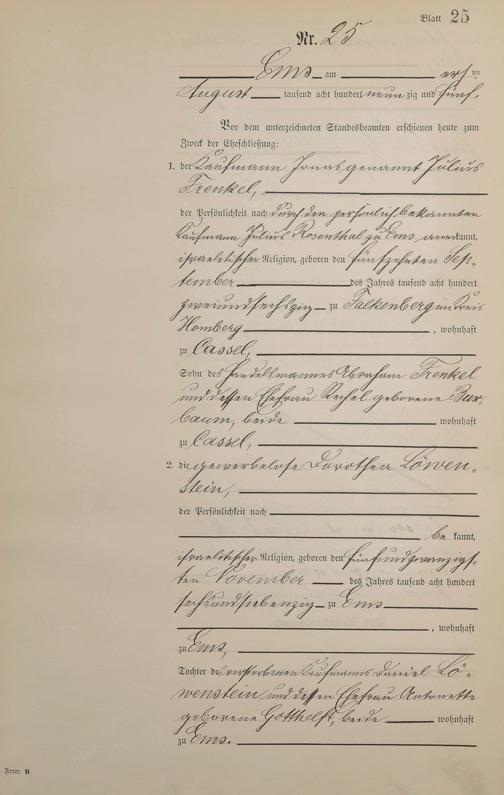 Blatt 25
Nr. 25
Ems am ersten
August tausend acht hundert neunzig und fünf.
Vor dem unterzeichneten Standesbeamten erschienen heute zum
Zweck der Eheschließung:
1. der Kaufmann Jonas genannt Julius
Frenkel,
der Persönlichkeit nach durch den persönlich bekannten
Kaufmann Julius Rosenthal zu Ems anerkannt,
israelitischer Religion, geboren den fünfzehnten Sep-
tember des Jahres tausend acht hundert
zweiundsechszig zu Falkenberg im Kreis
Homberg, wohnhaft
zu Cassel,
Sohn des Handelsmannes Abraham Frenkel
und dessen Ehefrau Rechel geborene Bux-
baum, beide wohnhaft
zu Cassel,
2. die gewerbelose Dorothea Löwen-
stein,
der Persönlichkeit nach
bekannt,
israelitischer Religion, geboren den fünfundzwanzigs-
ten November des Jahres tausend acht hundert
sechsundsiebenzig zu Ems
, wohnhaft
zu Ems,
Tochter des verstorbenen Kaufmanns Daniel Lö-
wenstein und dessen Ehefrau Antonette
geborene Gotthelft, beide wohnhaft
zu Ems.
Form. B.